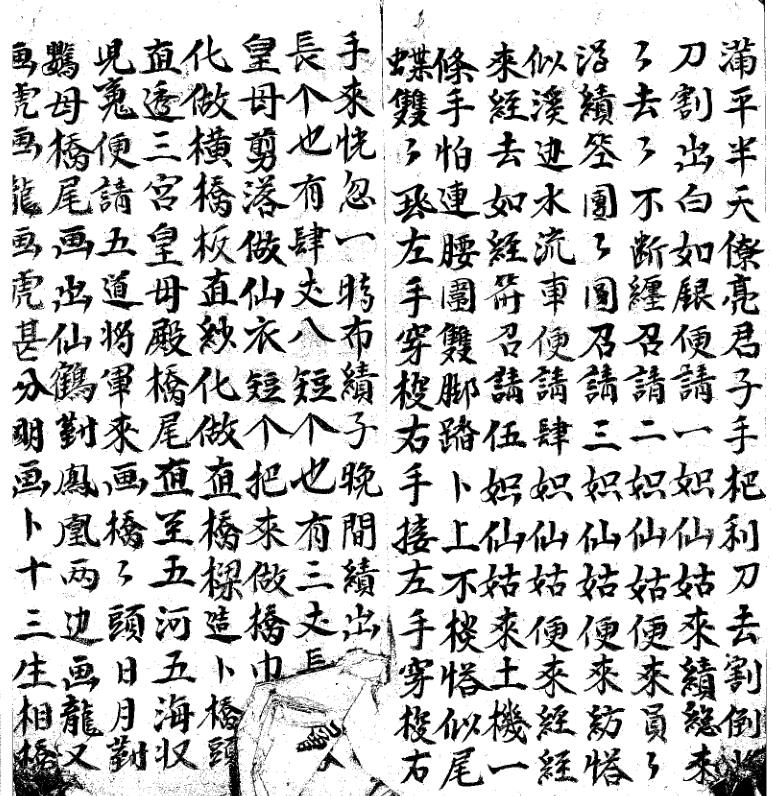 蒲平半天僚亮君子手杷利刀去割倒
刀割出白如銀便請一妎仙姑來績緦來
々去々不断纏召請二妎仙姑便來員々
淂績笁團々圓召請三妎仙姑便來紡㤩
似溪边水流車便請肆妎仙姑便來經經
來經去如經筓召請伍妎仙姑來土機一
條手怕連腰圍雙脚踏卜上不梭㤩似尾
蝶雙々飛左手穿梭右手接左手穿梭右
手來恍忽一時布績子晚間績出
長个也有肆丈八短个也有三丈長
皇母剪落做仙衣短个把來做橋巾
化做橫橋板直紗化做直橋樑造卜橋頭
直透三宮皇母殿橋尾直至五河五海収
児䰟便請五道將軍來画橋々頭日月對
鸚母橋尾画出仙鶴對鳳凰两边画龍又
画虎画龍画虎甚分明画卜十三生相橋